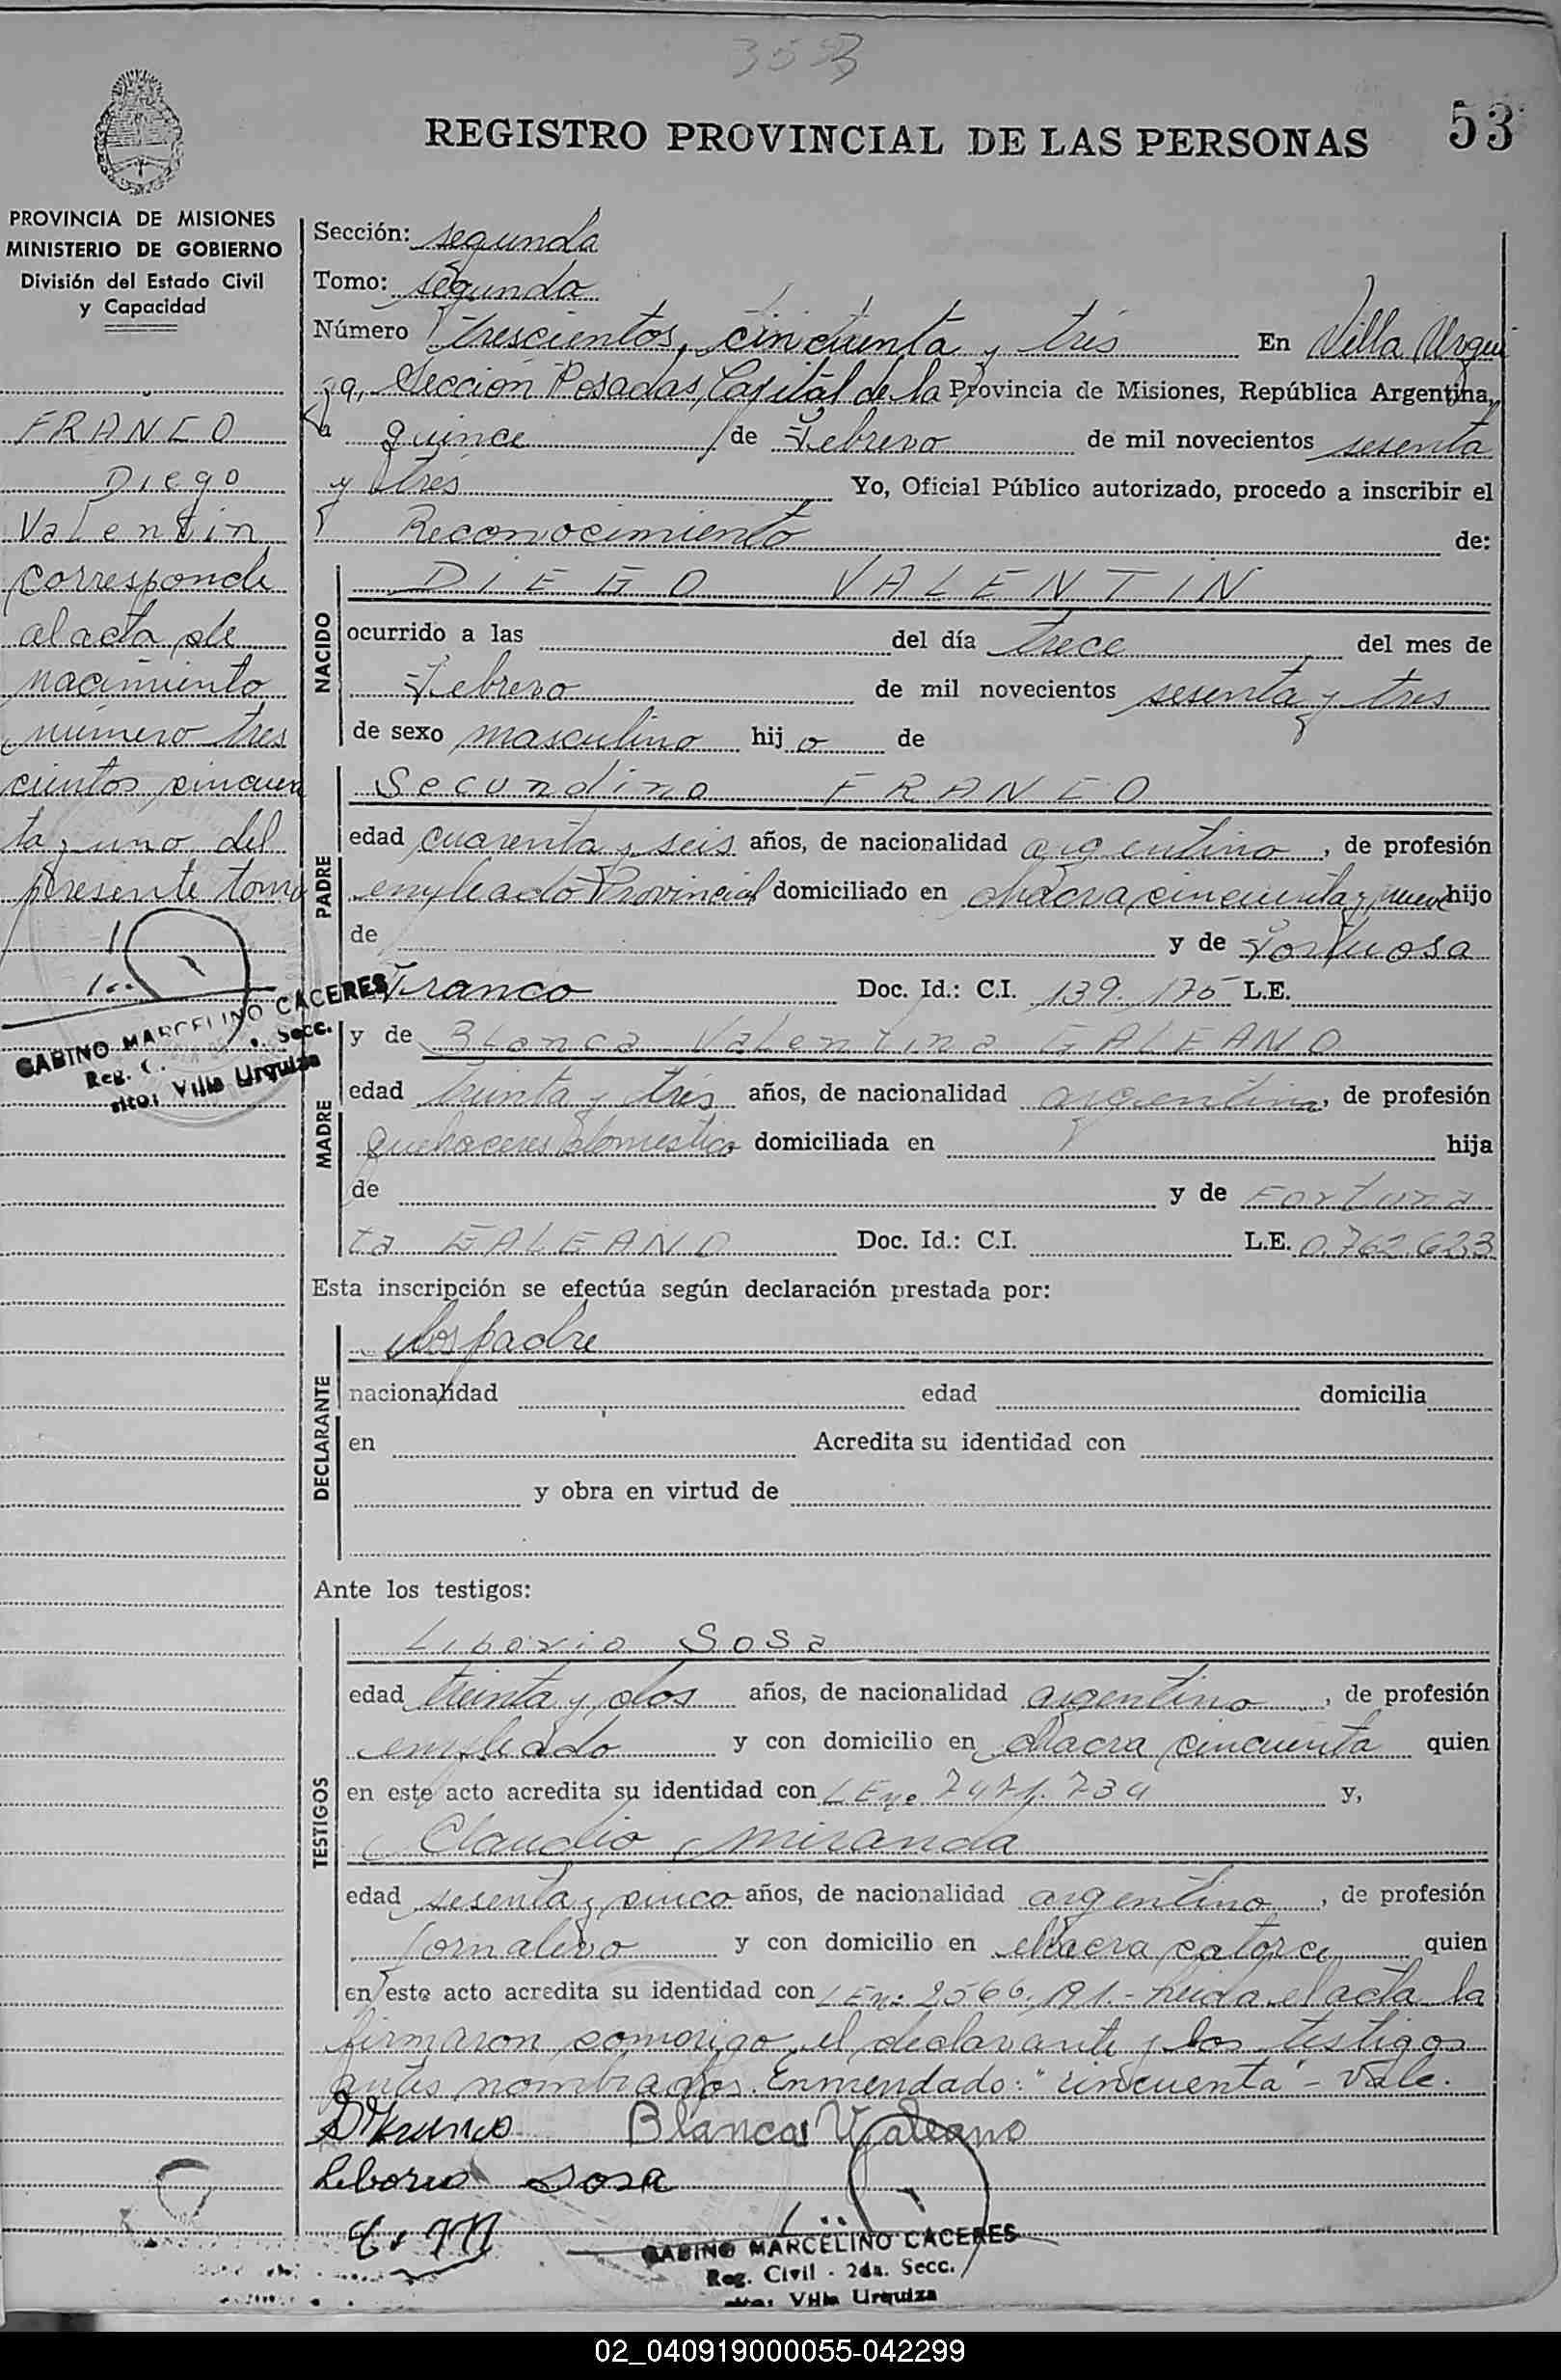 353
REGISTRO PROVINCIAL DE LAS PERSONAS
53
PROVINCIA DE MISIONES
MINISTERIO DE GOBIERNO
División del Estado Civil
y Capacidad
FRANCO
Diego
Valentin
corresponde
al acta de
nacimiento
número tres
cientos cincuen
ta y uno del
presente tomo
GABINO MARCELINO CACERES
Reg. C. Secc.
Villa Urquiza
Sección: segunda
Tomo: segundo
Número trescientos cincuenta y tres En Villa Urqui
za, Sección Posadas, Capital de la Provincia de Misiones, República Argentina,
a quince de Febrero de mil novecientos sesenta
y tres Yo, Oficial Público autorizado, procedo a inscribir el
Reconocimiento de:
NACIDO
DIEGO VALENTIN
ocurrido a las del día trece del mes de
Febrero de mil novecientos sesenta y tres
de sexo masculino hijo de
PADRE
Secundino FRANCO
edad cuarenta y seis años, de nacionalidad argentino, de profesión
empleado Provincial domiciliado en chacra cincuenta y nueve hijo
de y de
Franco Doc. Id.: C.I. 139.175 L.E.
MADRE
y de Blanca Valentina GALEANO
edad treinta y tres años, de nacionalidad argentina, de profesión
quehaceres domestico domiciliada en hija
de y de Fortuna
ta GALEANO Doc. Id.: C.I. L.E. 0.762.623
Esta inscripción se efectúa según declaración prestada por:
DECLARANTE
los padre
nacionalidad edad domicilia
en Acredita su identidad con
y obra en virtud de
Ante los testigos:
TESTIGOS
Liborio Sosa
edad treinta y dos años, de nacionalidad argentino, de profesión
empleado y con domicilio en chacra cincuenta quien
en este acto acredita su identidad con L E nº 7471.734 y,
Claudio Miranda
edad sesenta y cinco años, de nacionalidad argentino, de profesión
jornalero y con domicilio en chacra catorce quien
en este acto acredita su identidad con L E nº 2566.191.- Leida el acta la
firmaron conmigo el declarante y los testigos
antes nombrados. Enmendado: "cincuenta" - Vale.
Blanca V Galeano
Liborio Sosa
GABINO MARCELINO CACERES
Reg. Civil - 2da. Secc.
Villa Urquiza
02_040919000055-042299